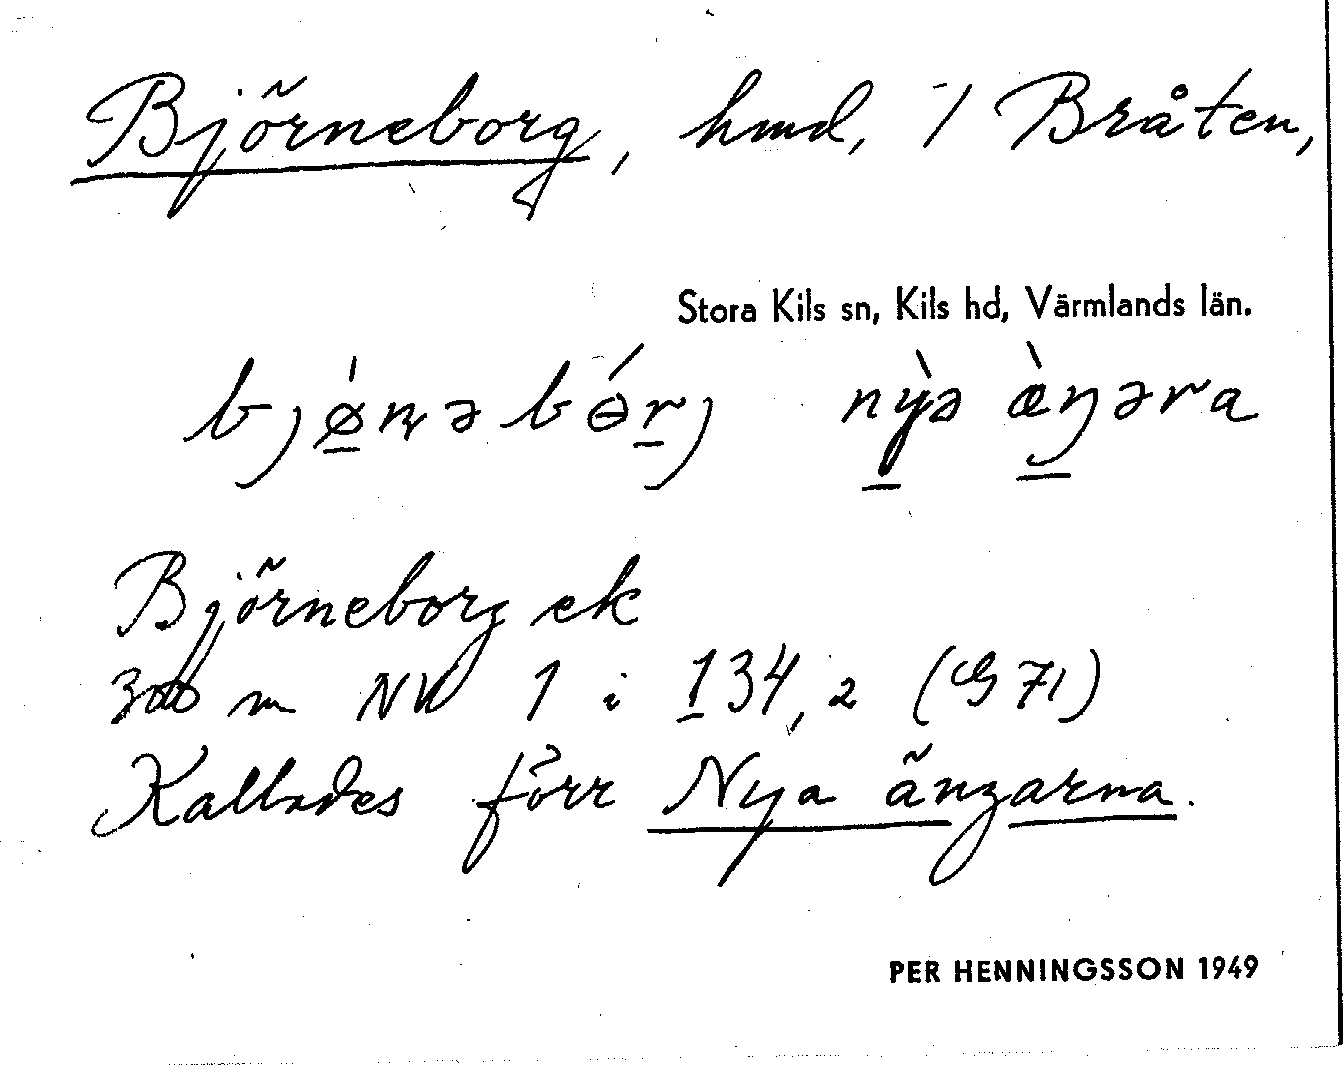 Björneborg, hmd, 1/ Bråten,
Stora Kils sn, Kils hd, Värmlands län.
bjø̀ɳəbɵ́rj nỳə æ̀ŋəra
Björneborg ek
300 m NV 1 i 134,2 (G 71)
Kallades förr Nya ängarna.
PER HENNINGSSON 1949